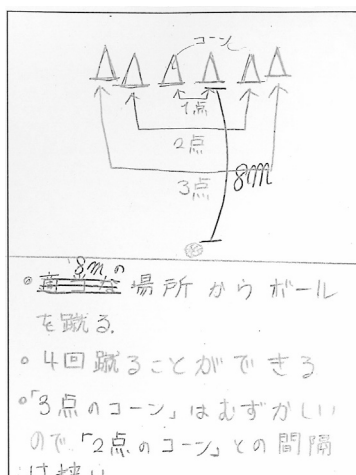 コーン
1点
2点
3点
8m
8mの
場所からボール
を蹴る.
4回蹴ることができる
「3点のコーン」はむずかしい
ので「2点のコーン」との間隔
は狭い